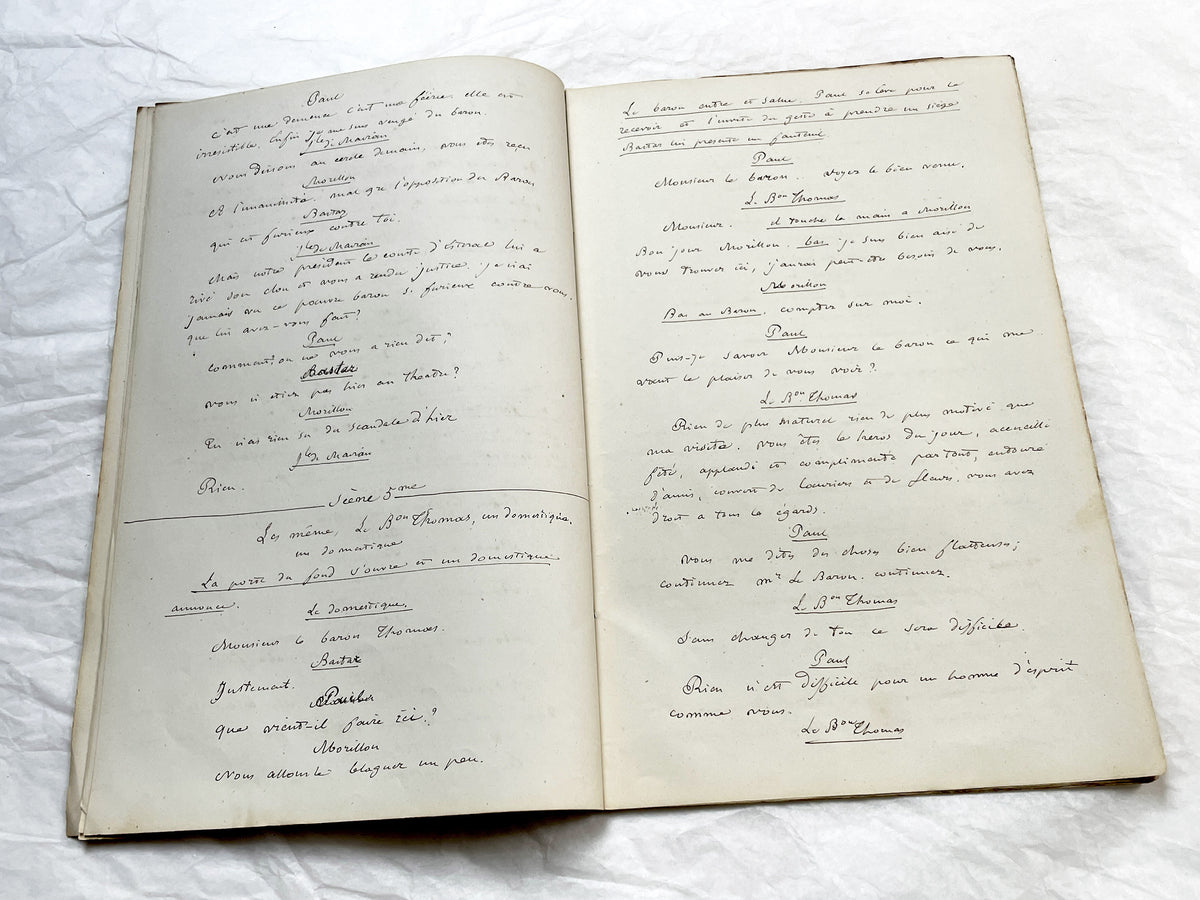 Paul
c'est une demeure c'est une féerie. elle est
irresistible. Enfin je me suis vengé du baron.
J<sup>les</sup> de Maran
Nous dinons au cercle demain, vous êtes reçu
Morillon
Et l'unanimité. mal gré l'opposition du Baron
Bastar
qui est furieux contre toi.
J<sup>les</sup> de Maran
Mais notre président le comte d'Estrac lui a
rivé son clou et vous a rendu justice. je n'ai
jamais vu ce pauvre baron si furieux contre vous.
que lui avez-vous fait?
Paul
comment, on ne vous a rien dit;
Bastar
vous n'étiez pas hier au théatre?
Morillon
Tu n'as rien su du scandale d'hier
J<sup>les</sup> de Maran
Rien.
Scène 5<sup>me</sup>
Les même, Le B<sup>on</sup> Thomas, un domestique.
un domestique
La porte du fond s'ouvre et un domestique
annonce.
Le domestique.
Monsieur le baron Thomas.
Bastar
Justement.
Paul
que vient-il faire ici?
Morillon
Nous allons le blaguer un peu.
Le baron entre et salue. Paul se lève pour le
recevoir et l'invite du geste à prendre un siège
Bastar lui présente un fauteuil
Paul
Monsieur le baron. soyez le bien venu.
Le B<sup>on</sup> Thomas
Monsieur. il touche la main a Morillon
Bon jour Morillon. bas. je suis bien aise de
vous trouver ici, j'aurai peut-être besoin de vous.
Morillon
Bas au Baron. comptez sur moi.
Paul
Puis-je savoir Monsieur le baron ce qui me
vaut le plaisir de vous voir?
Le B<sup>on</sup> Thomas
Rien de plus naturel rien de plus motivé que
ma visite. vous êtes le heros du jour, accueilli
fêté, applaudi et complimenté partout, entouré
d'amis, couvert de lauriers et de fleurs. vous avez
droit a tous le égards.
Paul
vous me dites des choses bien flatteuses;
continuez m<sup>r</sup> Le Baron. continuez.
Le B<sup>on</sup> Thomas
Sans changer de ton ce sera difficile.
Paul
Rien n'est difficile pour un homme d'esprit
comme vous.
Le B<sup>on</sup> Thomas